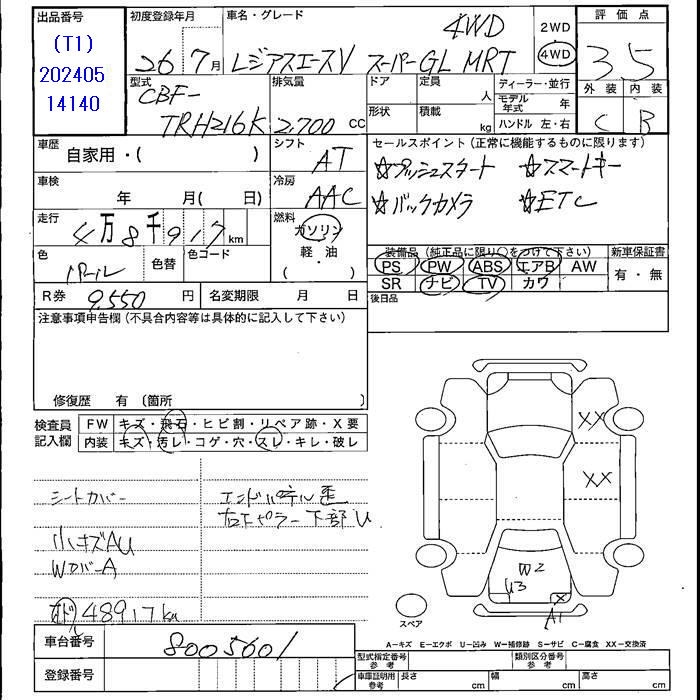 出品番号
(T1)
202405
14140
初度登録年月
26年7月
車名・グレード
4WD
レジアスエースV スーパーGL MRT
2WD
4WD
評価点
3.5
外装 内装
C B
型式
CBF-
TRH216K
排気量
2,700 cc
ドア
定員
人
形状
積載
kg
ディーラー・並行
モデル年式 年
ハンドル 左・右
車歴
自家用・( )
シフト
AT
セールスポイント(正常に機能するものに限ります)
☆プッシュスタート ☆スマートキー
☆バックカメラ ☆ETC
車検
年 月(日)
冷房
AAC
走行
4万8千917km
燃料
ガソリン
軽・油
( ・ )
色
パール
色替
色コード
装備品(純正品に限り○をつけて下さい)
PS PW ABS エアB AW
SR ナビ TV カワ
新車保証書
有・無
R券 9,550 円
名変期限 月 日
後日品
注意事項申告欄(不具合内容等は具体的に記入して下さい)
修復歴 有(箇所
検査員
記入欄
FW キズ・飛石・ヒビ割・リペア跡・X要
内装 キズ・汚レ・コゲ・穴・スレ・キレ・破レ
シートカバー
エンドパネル歪
右Bピラー下部U
小キズAU
WカバーA
オド 48917km
XX
XX
W2
U3
X
A1
スペア
A－キズ E－エクボ U－凹み W－補修跡 S－サビ C－腐食 XX－交換済
車台番号 8005601
登録番号
型式指定番号
参考
類別区分番号
参考
車庫証明用
参考
長さ cm 幅 cm 高さ cm